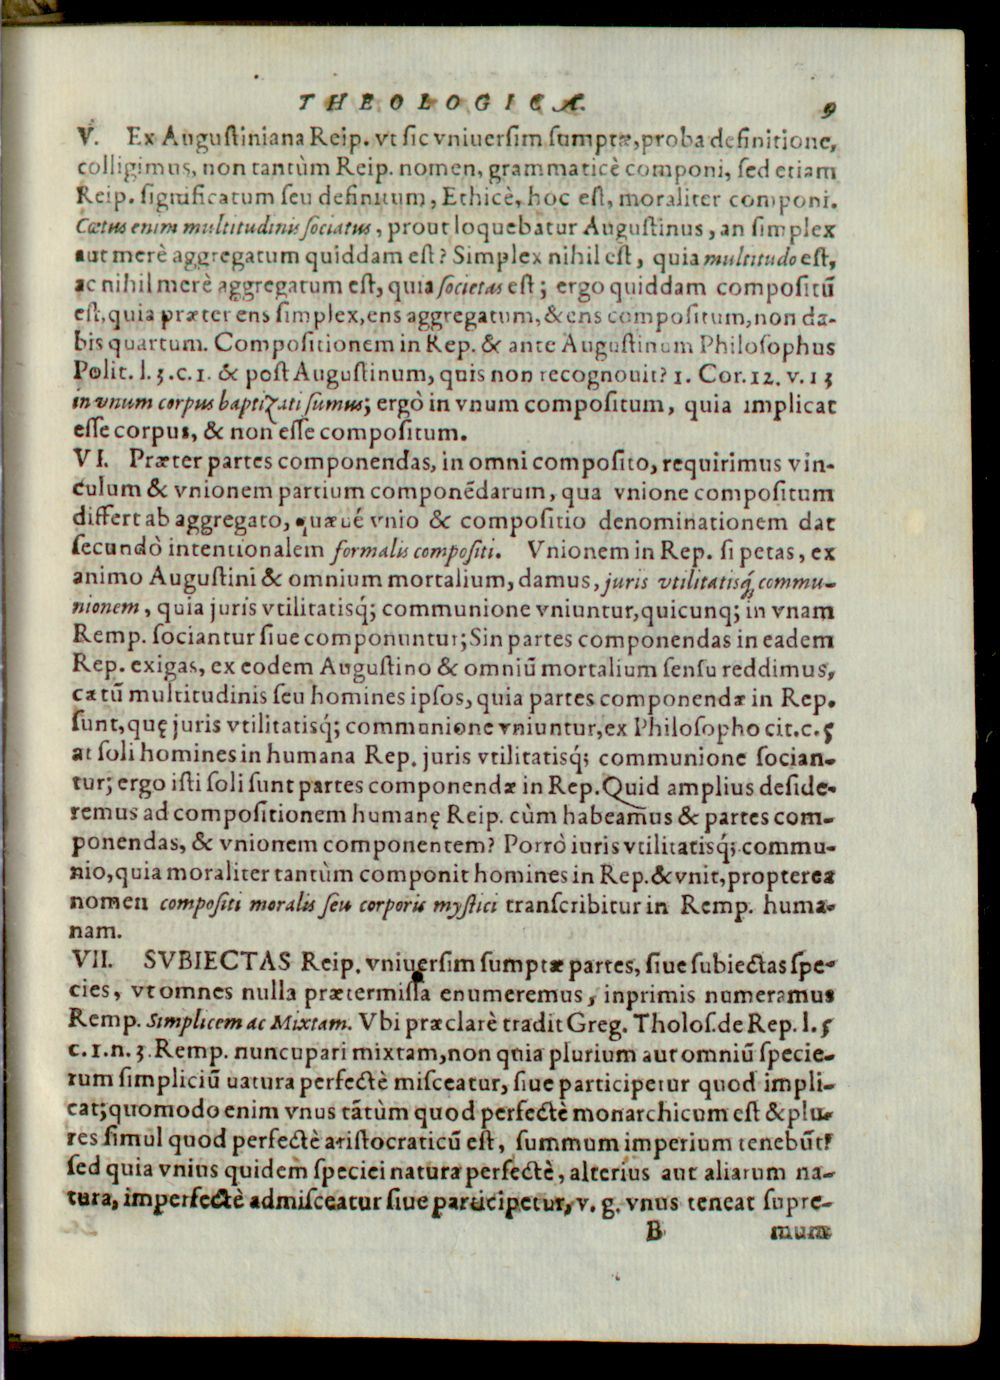 THEOLOGICÆ. 9
V. Ex Augustiniana Reip. vt sic vniuersim sumptæ, proba definitione,
colligimus, non tantùm Reip. nomen, grammaticè componi, sed etiam
Reip. significatum seu definitum, Ethicè, hoc est, moraliter componi.
Cœtus enim multitudinis sociatus, prout loquebatur Augustinus, an simplex
aut merè aggregatum quiddam est? Simplex nihil est, quia multitudo est,
ac nihil merè aggregatum est, quia societas est; ergo quiddam compositũ
est, quia præter ens simplex, ens aggregatum, & ens compositum, non da-
bis quartum. Compositionem in Rep. & ante Augustinum Philosophus
Polit. l. 3. c. 1. & post Augustinum, quis non recognouit? 1. Cor. 12. v. 13
in vnum corpus baptizati sumus; ergò in vnum compositum, quia implicat
esse corpus, & non esse compositum.
VI. Præter partes componendas, in omni composito, requirimus vin-
culum & vnionem partium componẽdarum, qua vnione compositum
differt ab aggregato, quæué vnio & compositio denominationem dat
secundò intentionalem formalis compositi. Vnionem in Rep. si petas, ex
animo Augustini & omnium mortalium, damus, juris vtilitatisq́; commu-
nionem, quia juris vtilitatisq́; communione vniuntur, quicunq; in vnam
Remp. sociantur siue componuntur; Sin partes componendas in eadem
Rep. exigas, ex eodem Augustino & omniũ mortalium sensu reddimus,
cætũ multitudinis seu homines ipsos, quia partes componendæ in Rep.
sunt, quę juris vtilitatisq́; communione vniuntur, ex Philosopho cit. c. 5
at soli homines in humana Rep. juris vtilitatisq́; communione socian-
tur; ergo isti soli sunt partes componendæ in Rep. Quid amplius deside-
remus ad compositionem humanę Reip. cùm habeamus & partes com-
ponendas, & vnionem componentem? Porrò iuris vtilitatisq́; commu-
nio, quia moraliter tantùm componit homines in Rep. & vnit, propterea
nomen compositi moralis seu corporis mystici transcribitur in Remp. huma-
nam.
VII. SVBIECTAS Reip. vniuersim sumptæ partes, siue subiectas spe-
cies, vt omnes nulla prætermissa enumeremus, inprimis numeramus
Remp. Simplicem ac Mixtam. Vbi præclarè tradit Greg. Tholos. de Rep. l. 5
c. 1. n. 3. Remp. nuncupari mixtam, non quia plurium aut omniũ specie-
rum simpliciũ uatura perfectè misceatur, siue participetur quod impli-
cat; quomodo enim vnus tãtùm quod perfectè monarchicum est & plu-
res simul quod perfectè aristocraticũ est, summum imperium tenebũt?
sed quia vnius quidem speciei natura perfectè, alterius aut aliarum na-
tura, imperfectè admisceatur siue participetur, v. g. vnus teneat supre-
B mum